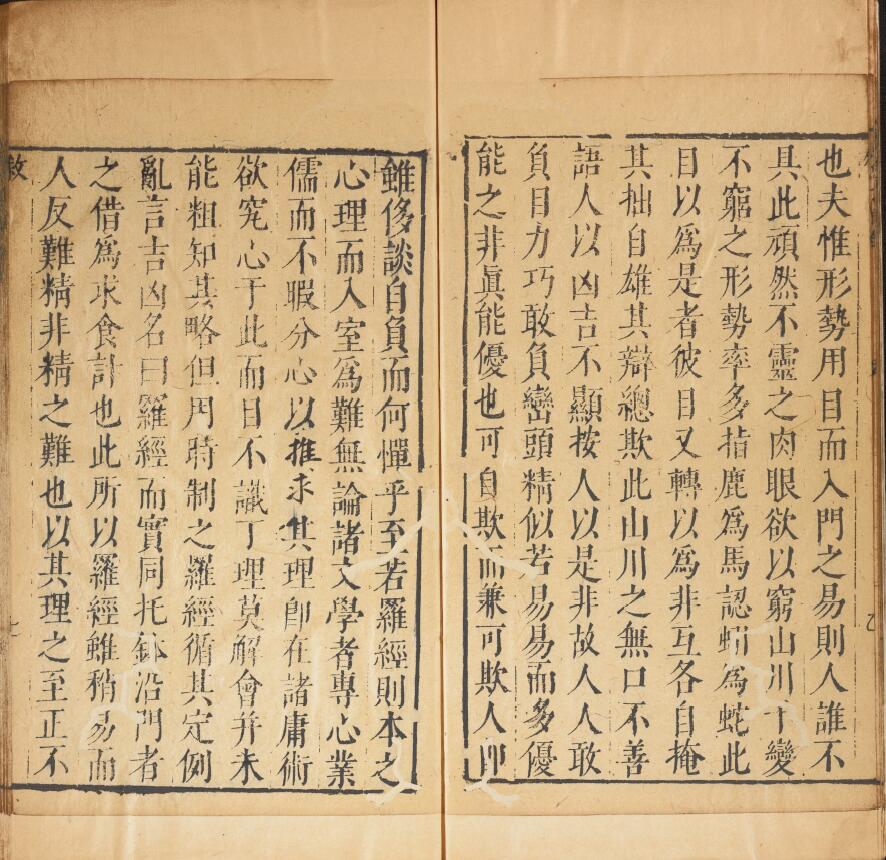 也夫惟形勢用目而入門之易則人誰不
具此頑然不靈之肉眼欲以窮山川十變
不窮之形勢率多指鹿爲馬認蚓爲蛇此
目以爲是者彼目又轉以爲非互各自掩
其拙自雄其辯總欺此山川之無口不善
語人以凶吉不顯按人以是非故人人敢
負目力巧敢負巒頭精似若易易而多優
能之非眞能優也可自欺而兼可欺人即
雖侈談自負而何憚乎至若羅經則本之
心理而入室爲難無論諸文學者專心業
儒而不暇分心以推求其理即在諸庸術
欲究心于此而目不識丁理莫解會并未
能粗知其略但用時制之羅經循其定例
亂言吉凶名曰羅經而實同托鉢沿門者
之借爲求食計也此所以羅經雖稍易而
人反難精非精之難也以其理之至正不
敘
七